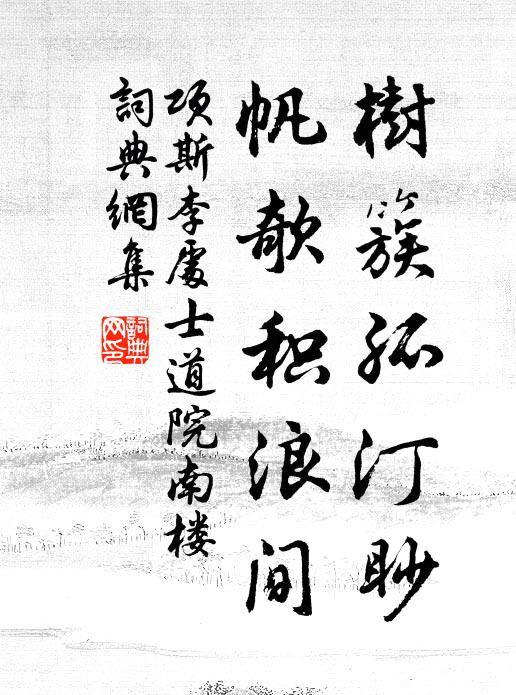 樹簇孤汀眇
帆欹积浪間
项斯李處士道院南楼
詞典網集
詞典网印